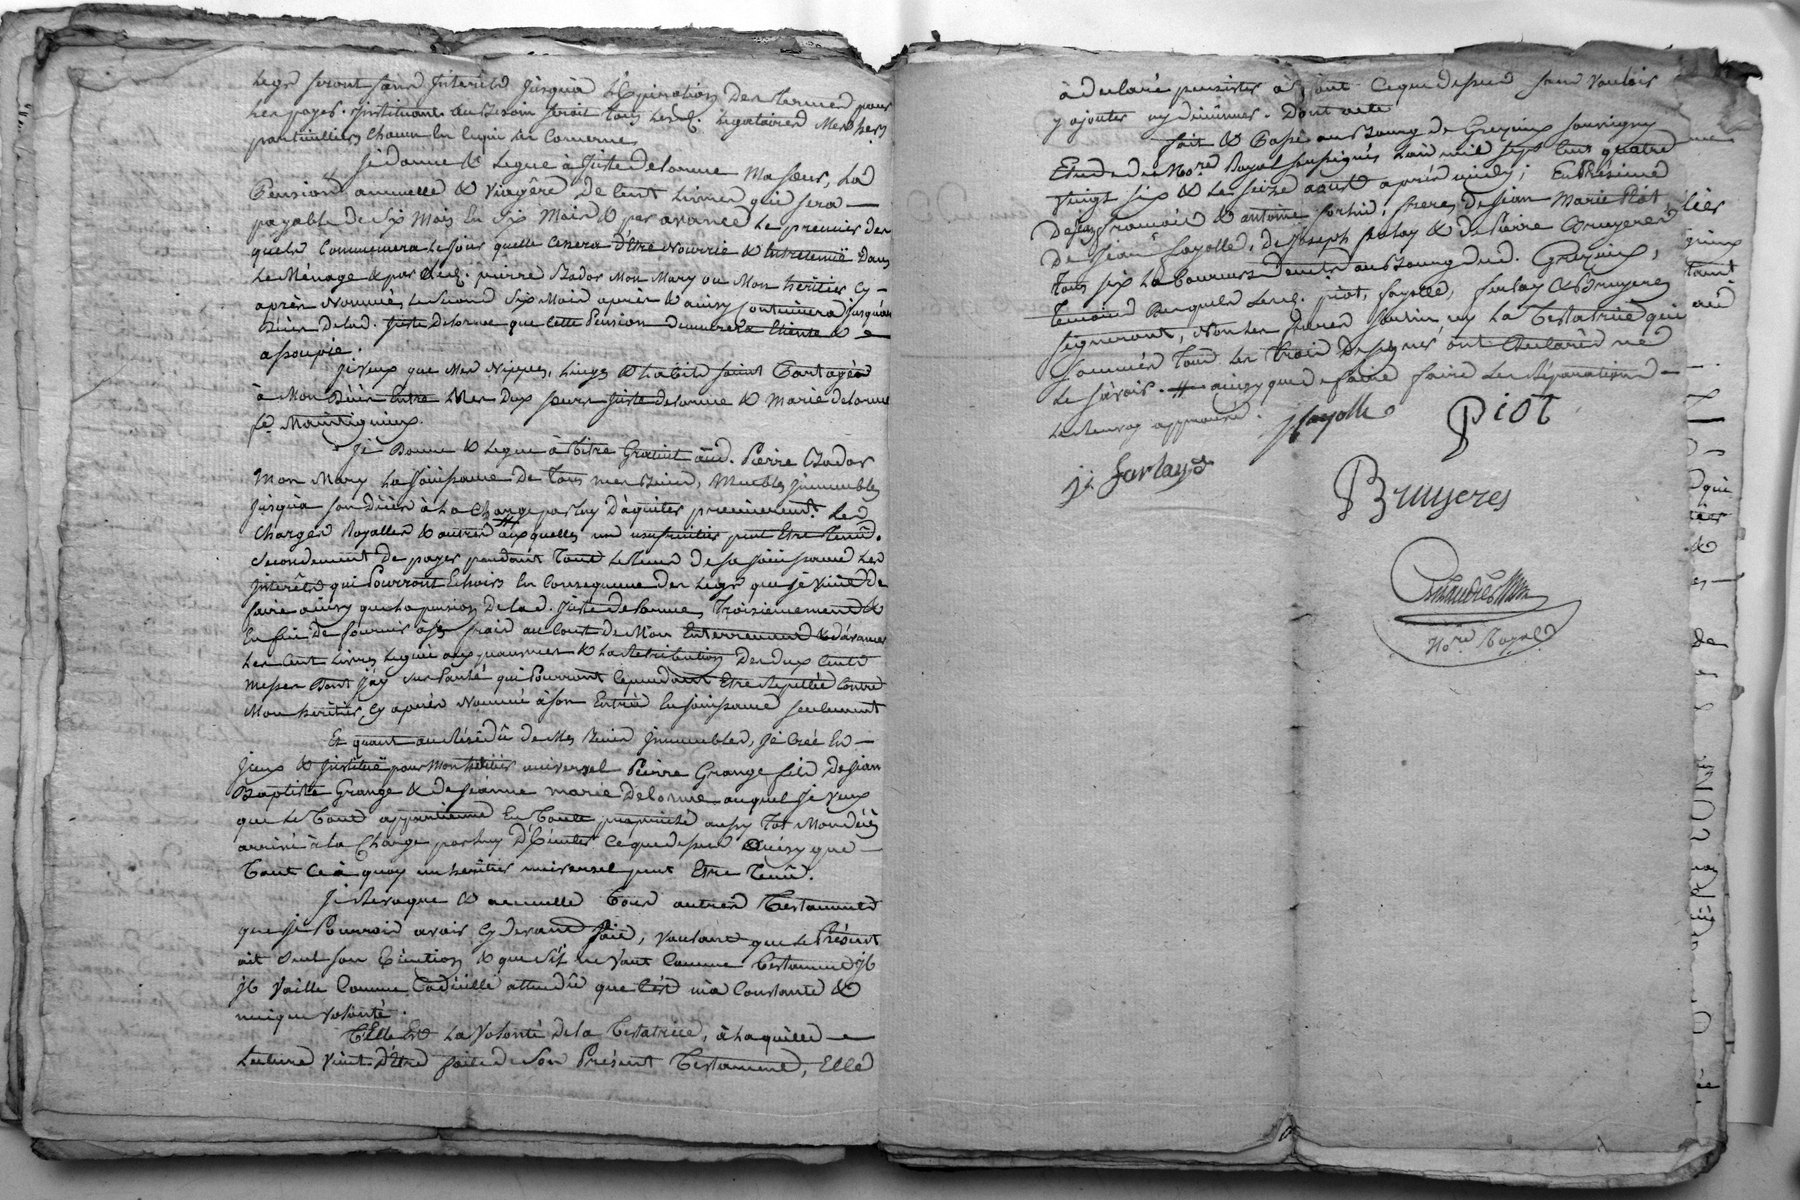 legs seront sans Interêts jusquà L'Expiration des termes pour
les payer. instituant au Besoin seroit tous lesd. legataires Mes hers
particuliers Chacun En Ceque les Concerne
Je donne & Legue à Juste delorme Ma soeur, La
Pension annuelle & Viagère de Cent Livres qui sera
payable de Six Mois En Six Mois & par avance Le premier des
quels Commencera le jour quelle Cessera d'Etre Nourrie & Entretenuë Dans
Le Ménage & par led. pierre Bador Mon Mary ou Mon héritier Cy
après Nommé, Le second Six Mois après & ainsy Continuera jusqu'au
décès de lad. Juste Delorme que Cette Pension demeurera Eteinte &
assoupie.
Je veux que Mes Nippes, linges & habits soient Partagés
à Mon Décès Entre Mes Deux soeurs Juste delorme & Marie delorme
fe. Montigneux.
Je Donne & Legue à Titre Gratuit aud. Pierre Bador
Mon Mary La Joüissance De Tous mes Biens, Meubles Immeubles
Jusqu'à son Décès à La Charge par luy D'aquiter premierement. Les
Charges Royalles & autres # auxquelles un usufruitier peut Etre Tenu.
Secondement de payer pendant Tout le tems de sa Joüissance Les
Interêts qui Pourront Echoir En Consequence des Legs que je viens de
faire ainsy que la pension De lad. Juste Delorme, Troisiemement &
En fin De fournir à ses frais au Cout de Mon Enterrement & d'avancer
Les Cent Livres Leguée aux pauvres & La Retribution Des deux Cents
Messes Dont j'ay sus Parlé qui Pourront Cependant Etre Repettée Contre
Mon héritier Cy après Nommé à son Entrée En Joüissance seulement
Et quant au Résidû de Mes Biens Immeubles, Je Crée En
Jceux & Instituë pour Mon héritier universel Pierre Grange fils De Jean
Baptiste Grange & de Jeanne marie Delorme auquel Je Veux
que Le Tout appartienne En Toute propriété aussy Tot Mon décès
arrivé à La Charge par luy D'Exécuter Ceque dessus ainsy que
Tout Ce à quoy un héritier universel peut Etre Tenû.
Je Revoque & annulle Tous autres Testaments
que je Pourrois avoir Cy devant faits, Voulant que Le Présent
ait Seul son Exécution & que s'il ne Vaut Comme Testament il
Vaille Comme Codicille attendû que C'est ma Constante &
unique volonté.
Telle Est La Volonté de la Testatrice, à Laquelle
Lecture Vient d'Etre faite de Son Présent Testament, Elle
à declaré persister à Tout Ceque dessus sans Vouloir
y ajouter ny diminuer. Dont acte
fait & Passé au Bourg de Grezieux
Etude du No.re Royal soussignés L'an mil sept Cent quatre
Vingt Six & Le seize aoust après midy; En Présence
de françois & antoine fortin, freres, de Jean Marie Piot
De Jean fayolle, de Joseph farlay & de Pierre Bruyeres
Tous six Laboureurs demts. au Bourg dud. Grezieux,
Temoins Lesquels Lesd. piot, fayolle, farlay & Bruyeres
signeront, Non Les freres fortin ny La Testatrice qui
sommés Tous les Trois De signer ont Déclarés ne
Le savoir. # ainsy que de faire faire Les Réparations
Le Renvoy approuvé.
J fayolle
Piot
J. farlay
Bruyeres
No.re Royal